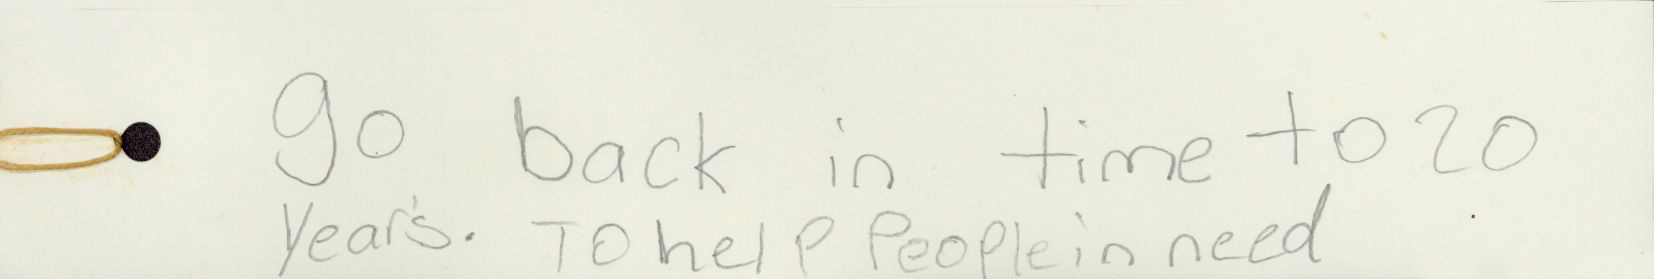 go back in time to 20
year's. To help People in need